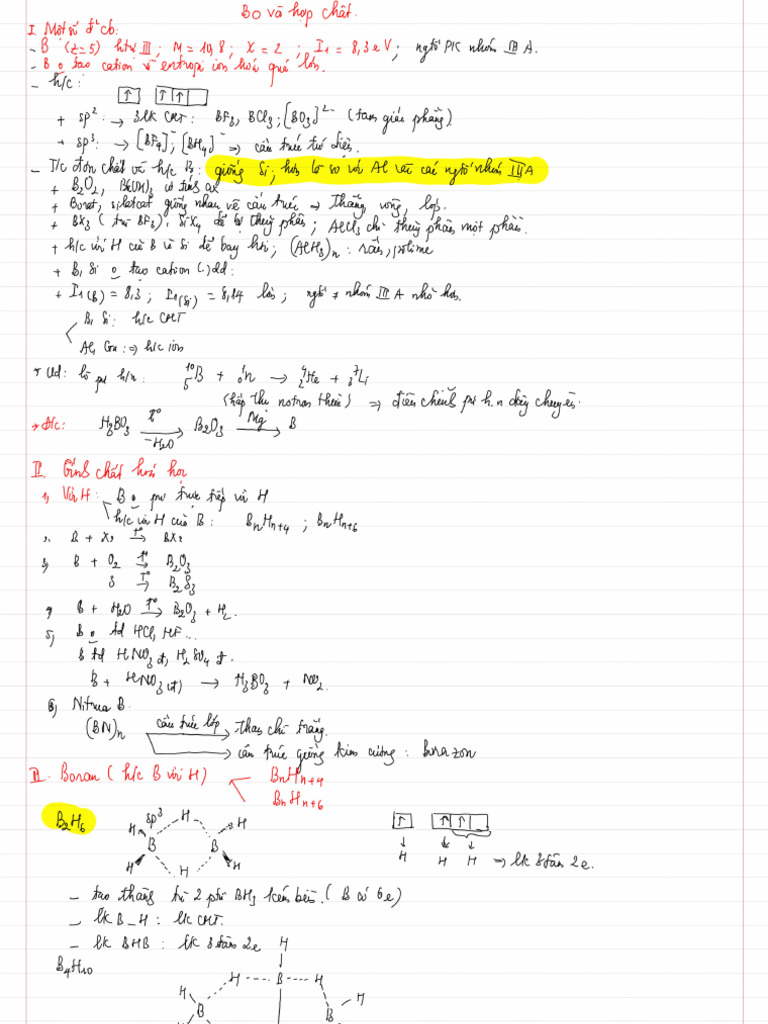 Bo và hợp chất.
I. Một số đ²cb:
- B (z=5) htrị III; M = 10,8; X = 2; I₁ = 8,3 eV; ngtố PK nhóm IIIA.
- B o tạo cation vì entropi ion hoá quá lớn.
- h/c:
↑ ↑ ↑
+ sp²: → 3lk CHT: BF₃, BCl₃; [BO₃]²⁻ (tam giác phẳng)
+ sp³: → [BF₄]⁻; [BH₄]⁻ ⇒ cấu trúc tứ diện.
- T/c đơn chất và h/c B: giống Si; hơn là so với Al và các ngtố nhóm IIIA
+ B₂O₂, B(OH)₃ có tính ax
+ Borat, silicat giống nhau về cấu trúc ⇒ thẳng, vòng, lớp.
+ BX₃ (trừ BF₃), SiX₄ dễ bị thuỷ phân; AlCl₃ chỉ thuỷ phân một phần.
+ h/c với H của B và Si dễ bay hơi; (AlH₃)ₙ: rắn, polime
+ B, Si o tạo cation (.) dd:
+ I₁(B) = 8,3; I₁(Si) = 8,14 lớn; ngtố ≠ nhóm IIIA nhỏ hơn.
B, Si: h/c CHT
Al, Ga: ⇒ h/c ion
* Ưd: lò pư h/n: ¹⁰₅B + ¹₀n → ⁴₂He + ⁷₃Li
(hấp thu notron thừa) ⇒ điều chỉnh pư h.n dây chuyền.
* Đ/c: H₃BO₃ t° -H₂O → B₂O₃ Mg → B
II. Tính chất hoá học
1, Với H: B o pư trực tiếp với H
h/c với H của B: BₙHₙ₊₄; BₙHₙ₊₆
2. B + X₂ t° → BX₃
3, B + O₂ t° → B₂O₃
S t° → B₂S₃
4, B + H₂O t° → B₂O₃ + H₂.
5, B o td HCl, HF...
B td HNO₃ đ, H₂SO₄ đ.
B + HNO₃(đ) → H₃BO₃ + NO₂.
6, Nitrua B.
(BN)ₙ cấu trúc lớp → Than chì trắng.
→ cấu trúc giống kim cương: Borazon
II. Boran (h/c B với H) BₙHₙ₊₄
BₙHₙ₊₆
B₂H₆
sp³ H
H H
B B
H H
H
↑ ↑ ↑
H H H ⇒ lk 3 tâm 2e.
- tạo thành từ 2 ptử BH₃ kém bền. (B có 6e)
- lk B_H: lk CHT.
- lk BHB: lk 3 tâm 2e
B₄H₁₀
H
H B H
H B B H
H